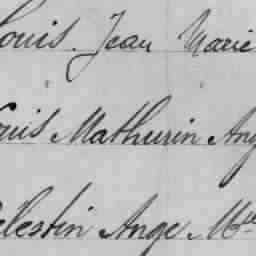 Louis Jean Marie
Louis Mathurin Ang
Célestin Ange M